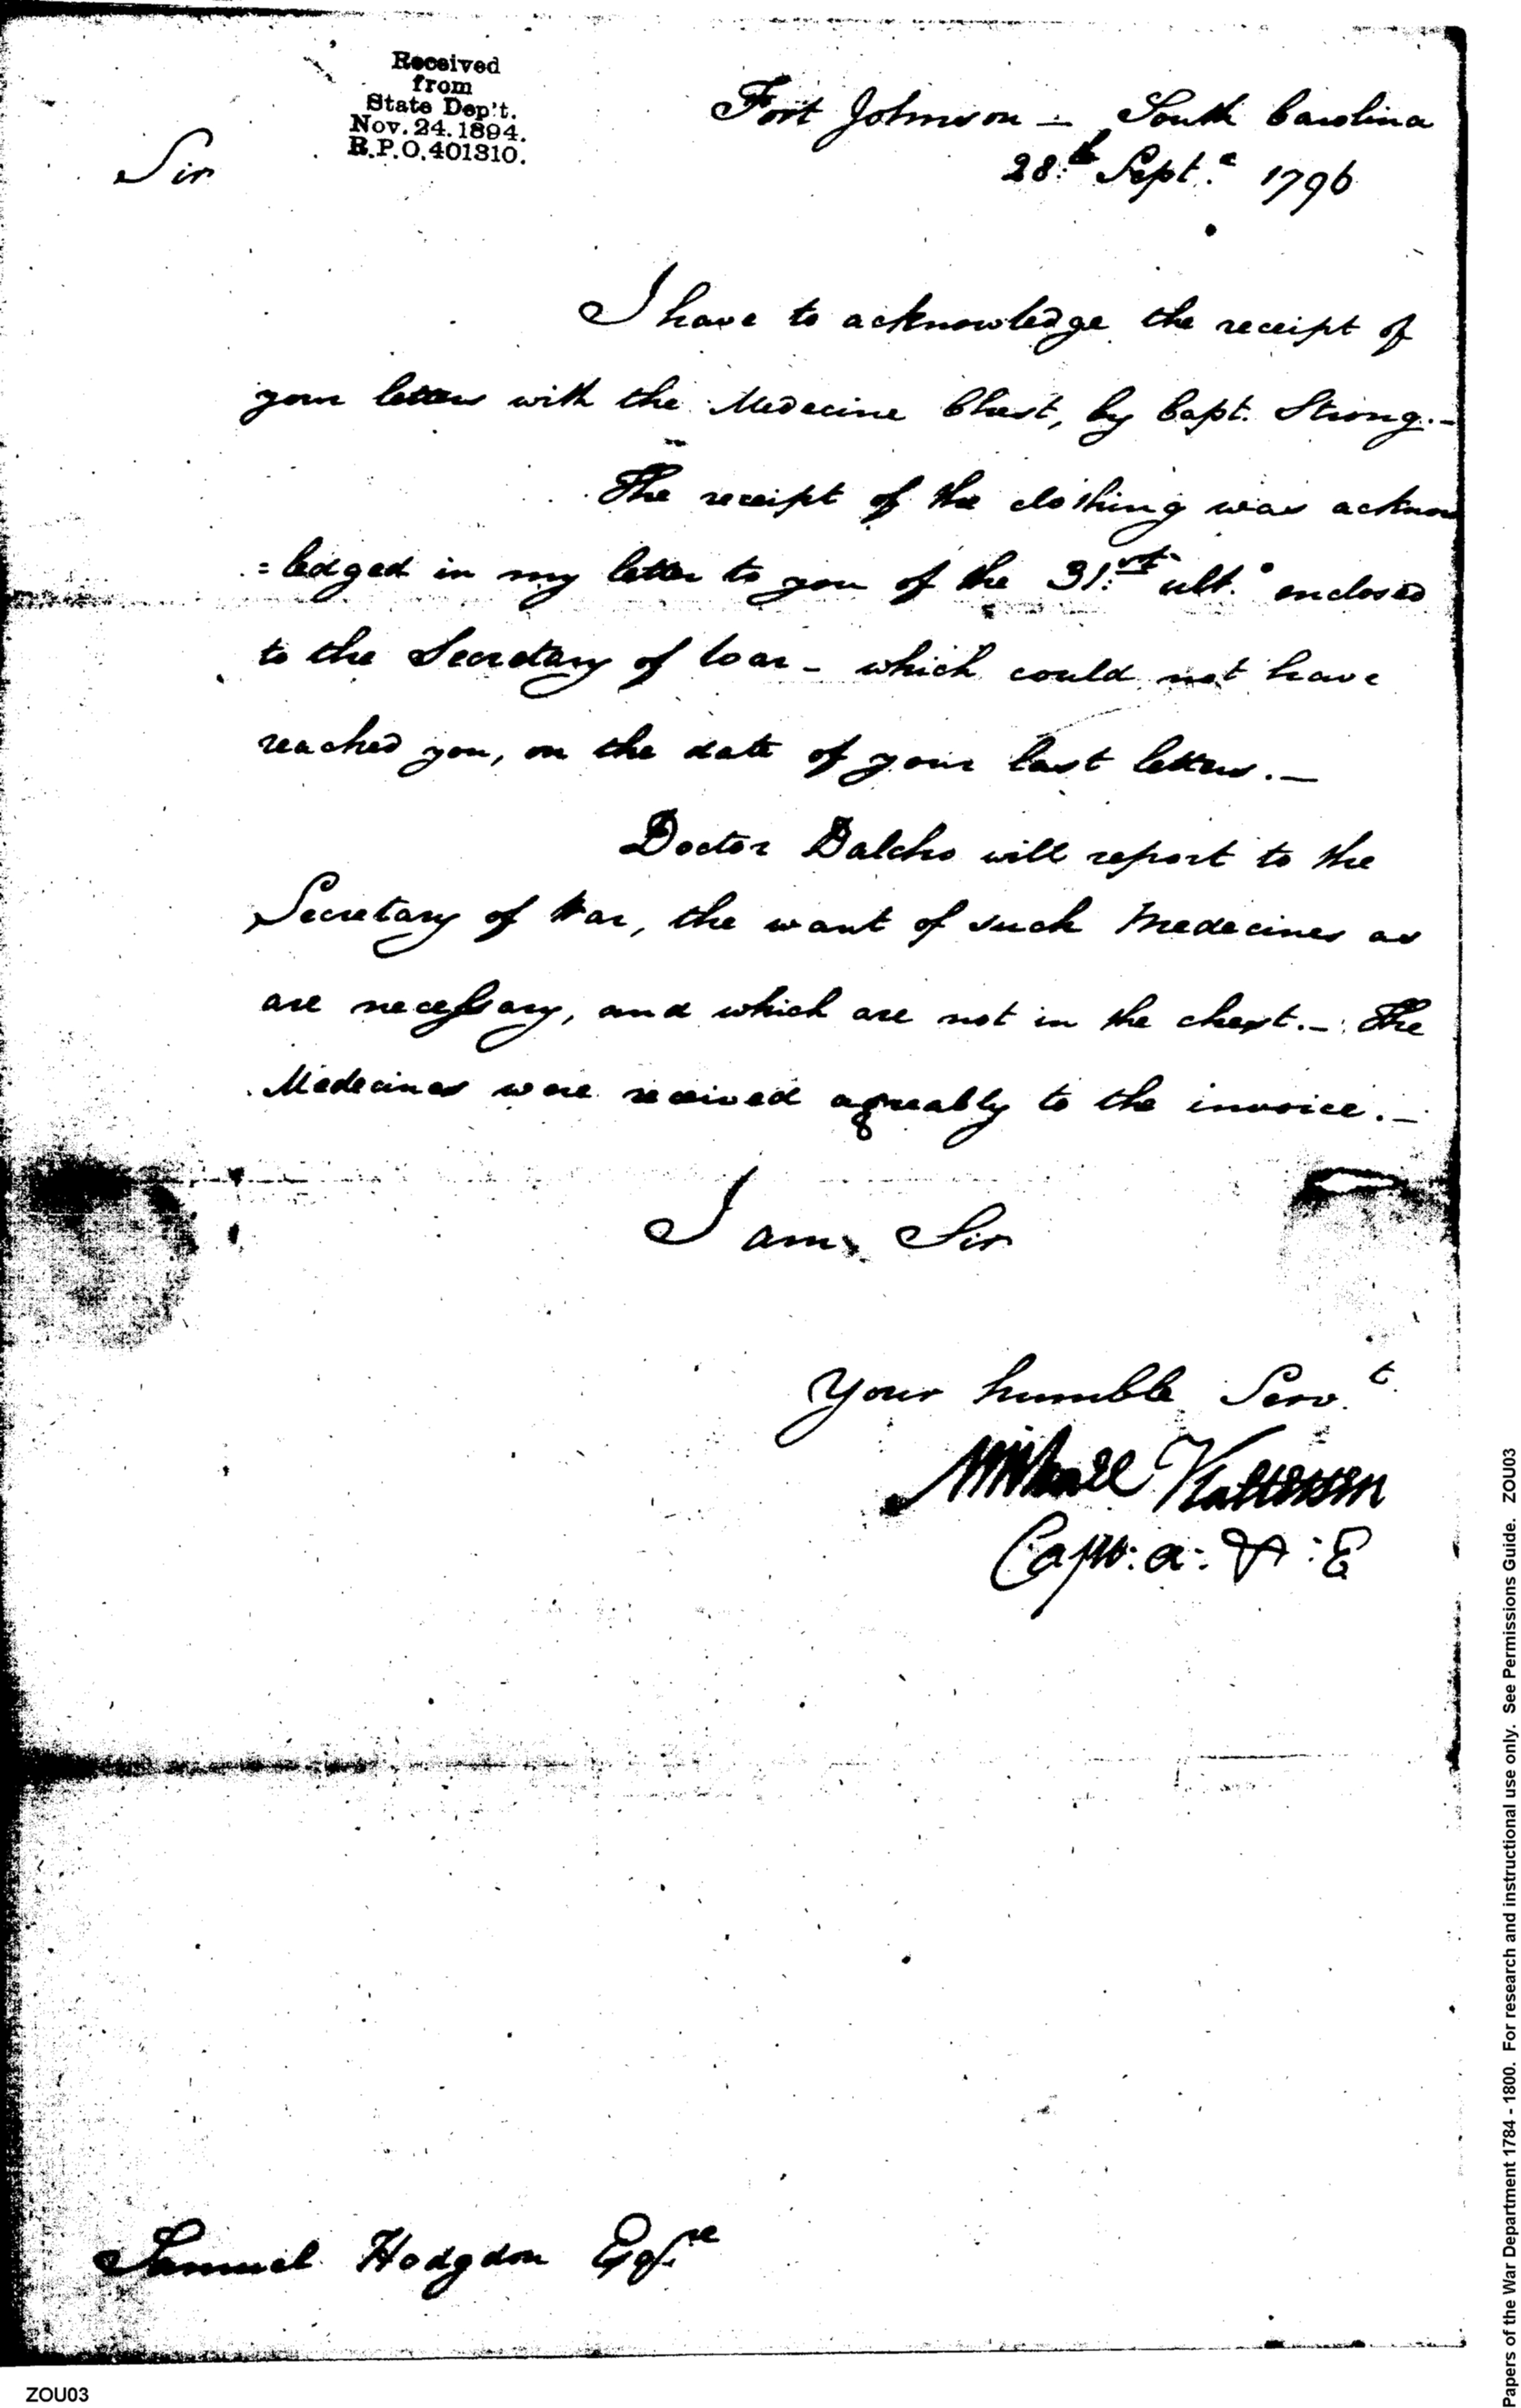 Received
from
State Dep't.
Nov. 24. 1894.
R.P.O. 401310.
Fort Johnson — South Carolina
28:th Sept.r 1796
Sir
I have to acknowledge the receipt of
your letter with the Medecine Chest, by Capt. Strong. —
The receipt of the clothing was acknow
=ledged in my letter to you of the 31:st ult.o enclosed
to the Secretary of War — which could not have
reached you, on the date of your last letter. —
Doctor Dalcho will report to the
Secretary of War, the want of such Medecines as
are necessary, and which are not in the chest. — The
Medecines were received agreeably to the invoice. —
I am, Sir
Your humble Serv.t
Michael Kalteisen
Capt: a: &: E
Samuel Hodgdon Esq.re
ZOU03
Papers of the War Department 1784 - 1800. For research and instructional use only. See Permissions Guide. ZOU03